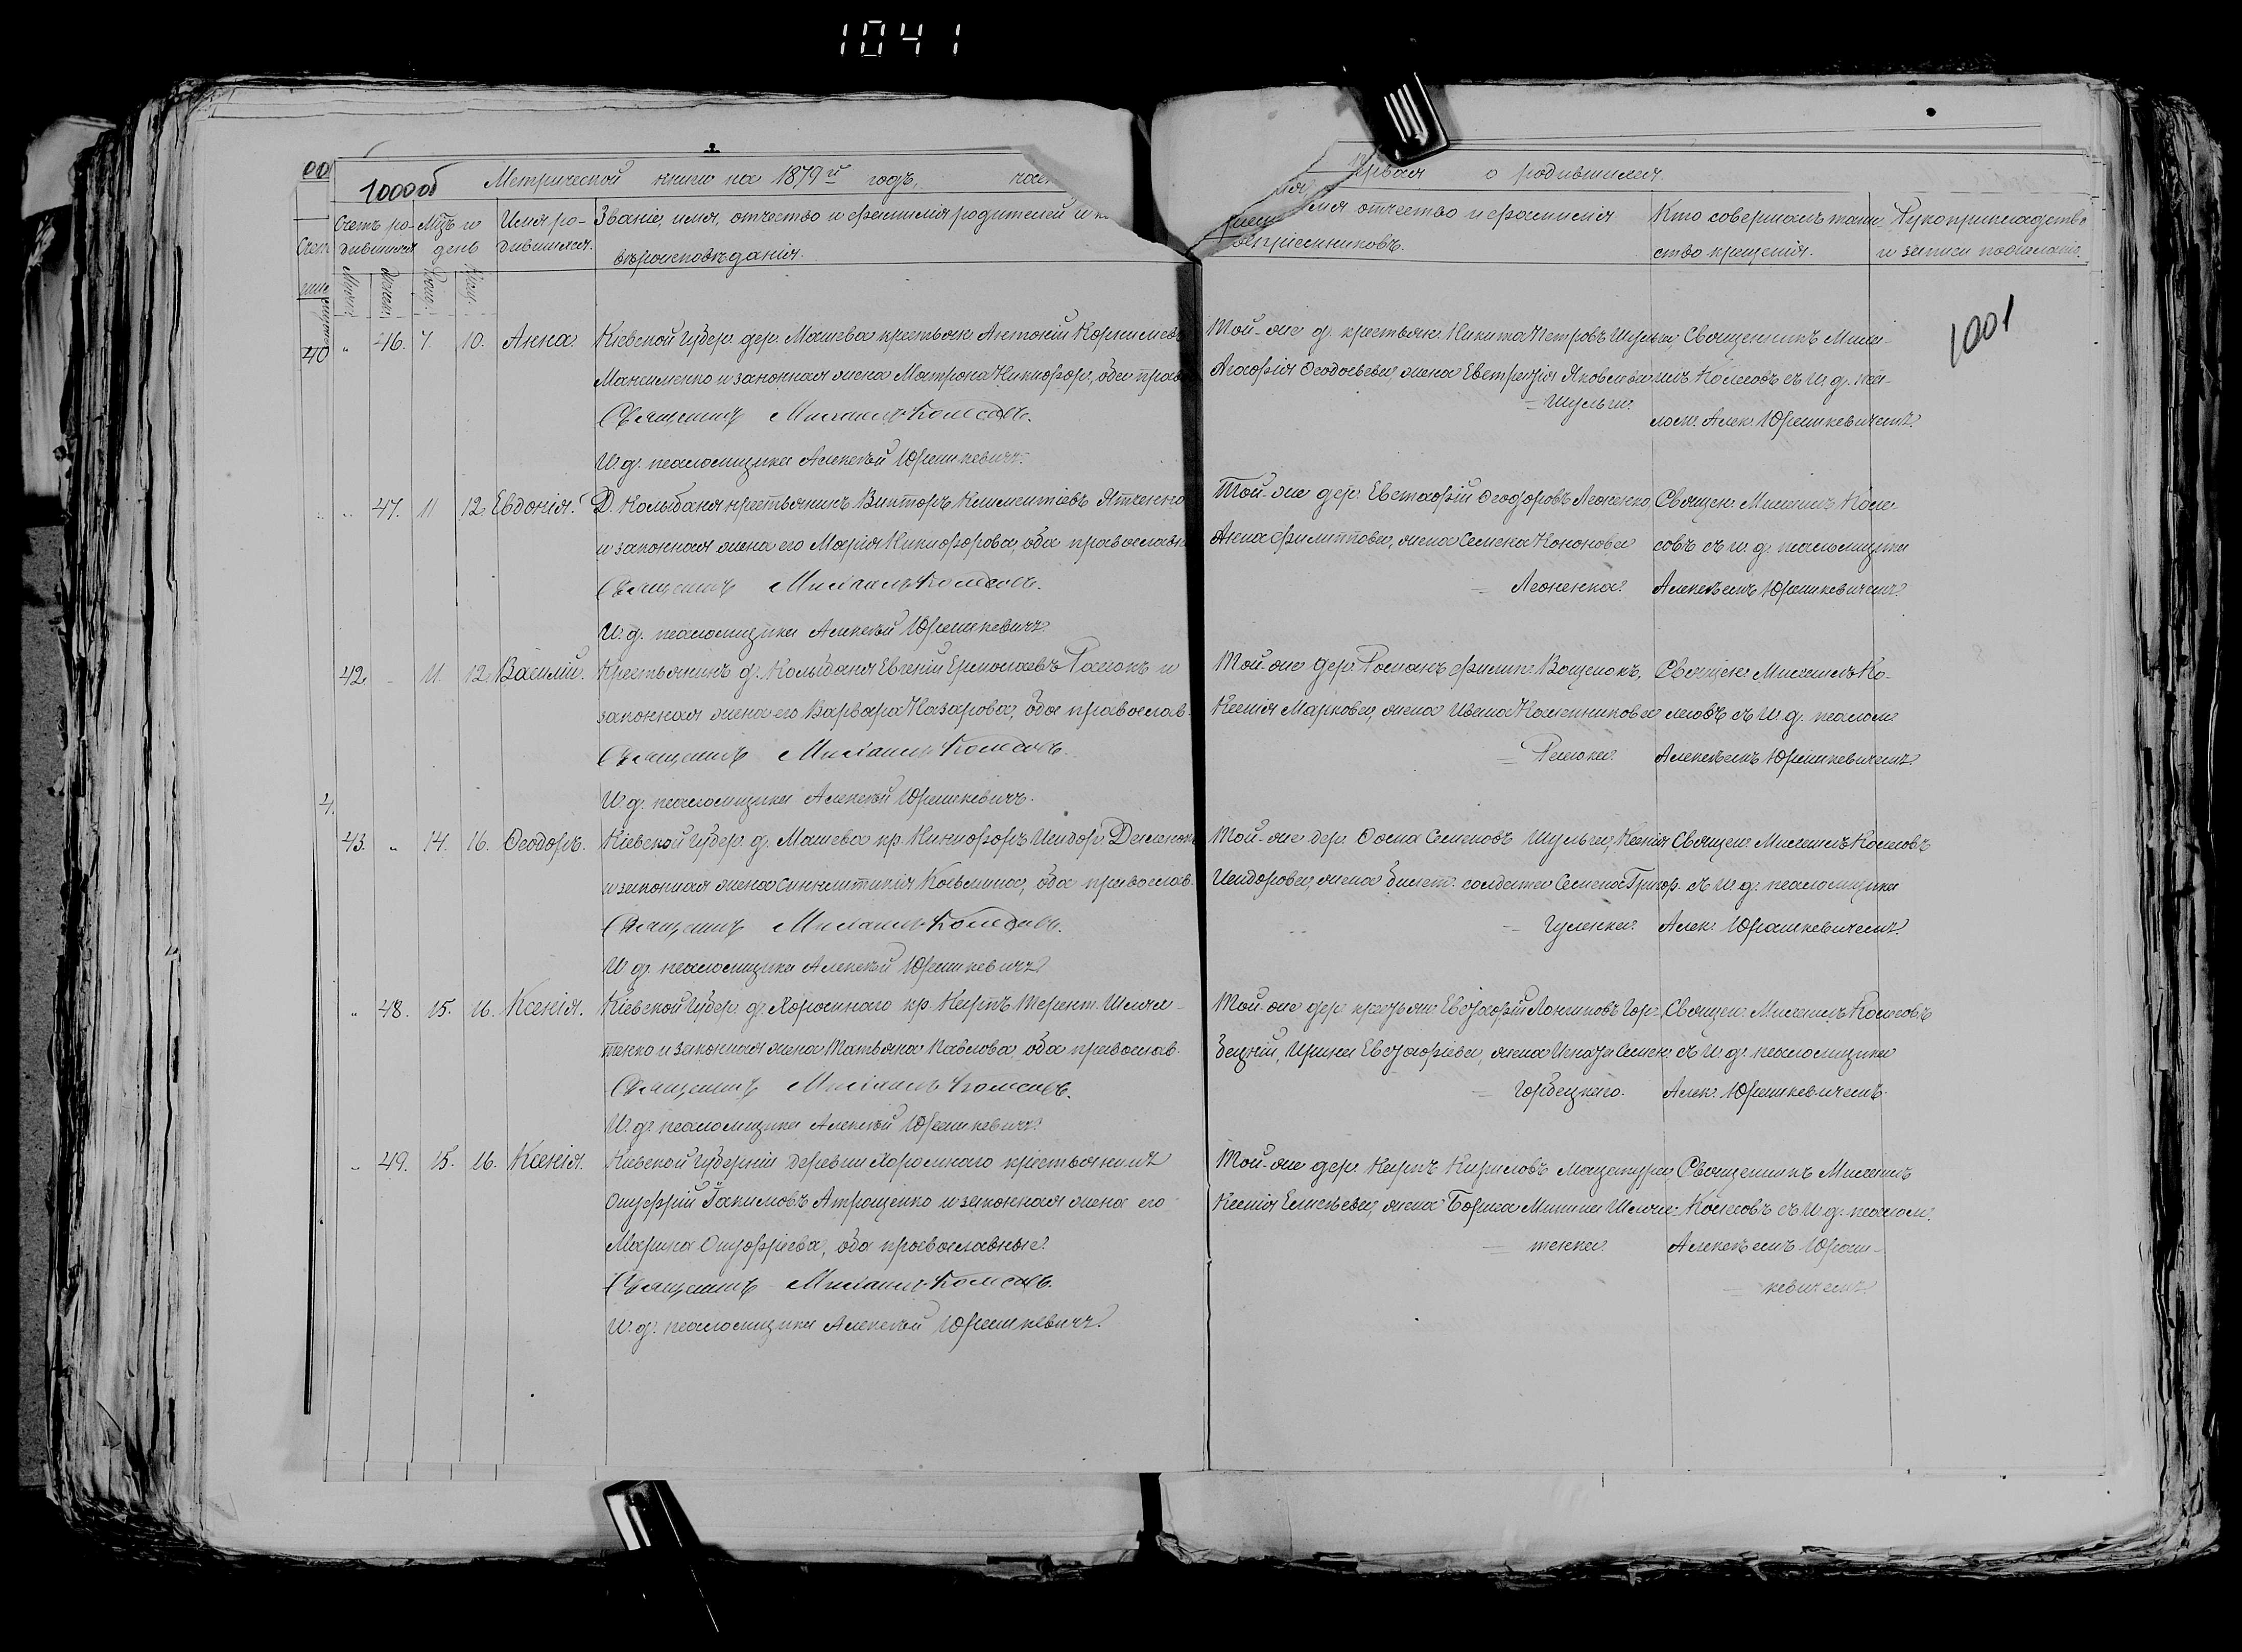 1041
1000 об
Метрической книги на 1879й годъ,
первая о родившихся
1001
Счетъ ро-дившихся
Мцъ и день
Имя ро-дившихся.
Званіе, имя, отчество и фамилія родителей и
вѣроисповѣданія.
имя отчество и фамилія
воспріемниковъ.
Кто совершалъ таин-
ство крещенія.
Рукоприкладство
и записи
46. 7. 10. Анна.
Кіевской Губер. дер. Машева крестьян. Антоній Корнилiев
Максименко и законная жена Матрона Никифор., оба прав
Священникъ Михаилъ Колесовъ.
И. д. псаломщика Алексѣй Юрашкевичъ.
Той-же д. крестьян. Никита Петровъ Шульга,
Агафія Феодосьева, жена Евстратія Яковлева
= Шульги.
Священникъ Миха-
илъ Колесовъ съ И. д. пса-
лом. Алек. Юрашкевичемъ.
47. 11 12. Евдокія.
Д. Колыбаня крестьянинъ Викторъ Климентіевъ Ятченко
и законная жена его Марія Никифорова, оба православн
Священникъ Михаилъ Колесовъ.
И. д. псаломщика Алексѣй Юрашкевичъ.
Той-же дер. Евстафій Феодоровъ Леоненко,
Анна Филиппова, жена Семена Кононова
= Леоненка.
Священ. Михаилъ Коле-
совъ съ и. д. псаломщика
Алексѣемъ Юрашкевичемъ.
42. - 11. 12. Василій.
Крестьянинъ д. Колыбаня Евгеній Ермолаевъ и
законная жена его Варвара Назарова, оба православ.
Священникъ Михаилъ Колесовъ.
И. д. псаломщика Алексѣй Юрашкевичъ.
Той-же дер. Романъ Филип. Вощенокъ,
Ксенія Маркова, жена Ивана
Священ. Михаилъ Ко-
лесовъ съ И. д. псалом.
Алексѣемъ Юрашкевичемъ.
43. „ 14. 16. Феодоръ.
Кіевской Губер. д. Машева кр. Никифоръ Исидор.
и законная жена Синклитикія Косьмина, оба православ.
Священникъ Михаилъ Колесовъ.
И. д. псаломщика Алексѣй Юрашкевичъ.
Той-же дер. Фома Семеновъ Шульга, Ксенія
Исидорова, жена билет. солдата Семена Григор.
= Гуленка.
Священ. Михаилъ Колесовъ
съ И. д. псаломщика
Алек. Юрашкевичемъ.
„ 48. 15. 16. Ксенія.
Кіевской Губер. д. Хоромнаго кр. Карпъ Терент. Шелест-
тенко и законная жена Татьяна Павлова, оба православ.
Священникъ Михаилъ Колесовъ.
И. д. псаломщика Алексѣй Юрашкевичъ.
Той-же дер. крестьян. Евстафій Логиновъ Гор-
бецкій, Ирина Евстафіева, жена Игнатія Семен.
= Горбецкаго.
Священ. Михаилъ Колесовъ
съ И. д. псаломщика
Алек. Юрашкевичемъ.
„ 49. 15. 16. Ксенія.
Кіевской Губерніи деревни Хоромнаго крестьянинъ
Онуфрій Іакимовъ Атрощенко и законная жена его
Марина Онуфріева, оба православные.
Священникъ Михаилъ Колесовъ.
И. д. псаломщика Алексѣй Юрашкевичъ.
Той-же дер. Карпъ Кириловъ Мацапура,
Ксенія Емельева, жена Бориса Микиты
= тенка.
Священникъ Михаилъ
Колесовъ съ И. д. псалом.
Алексѣемъ Юраш-
= кевичемъ.